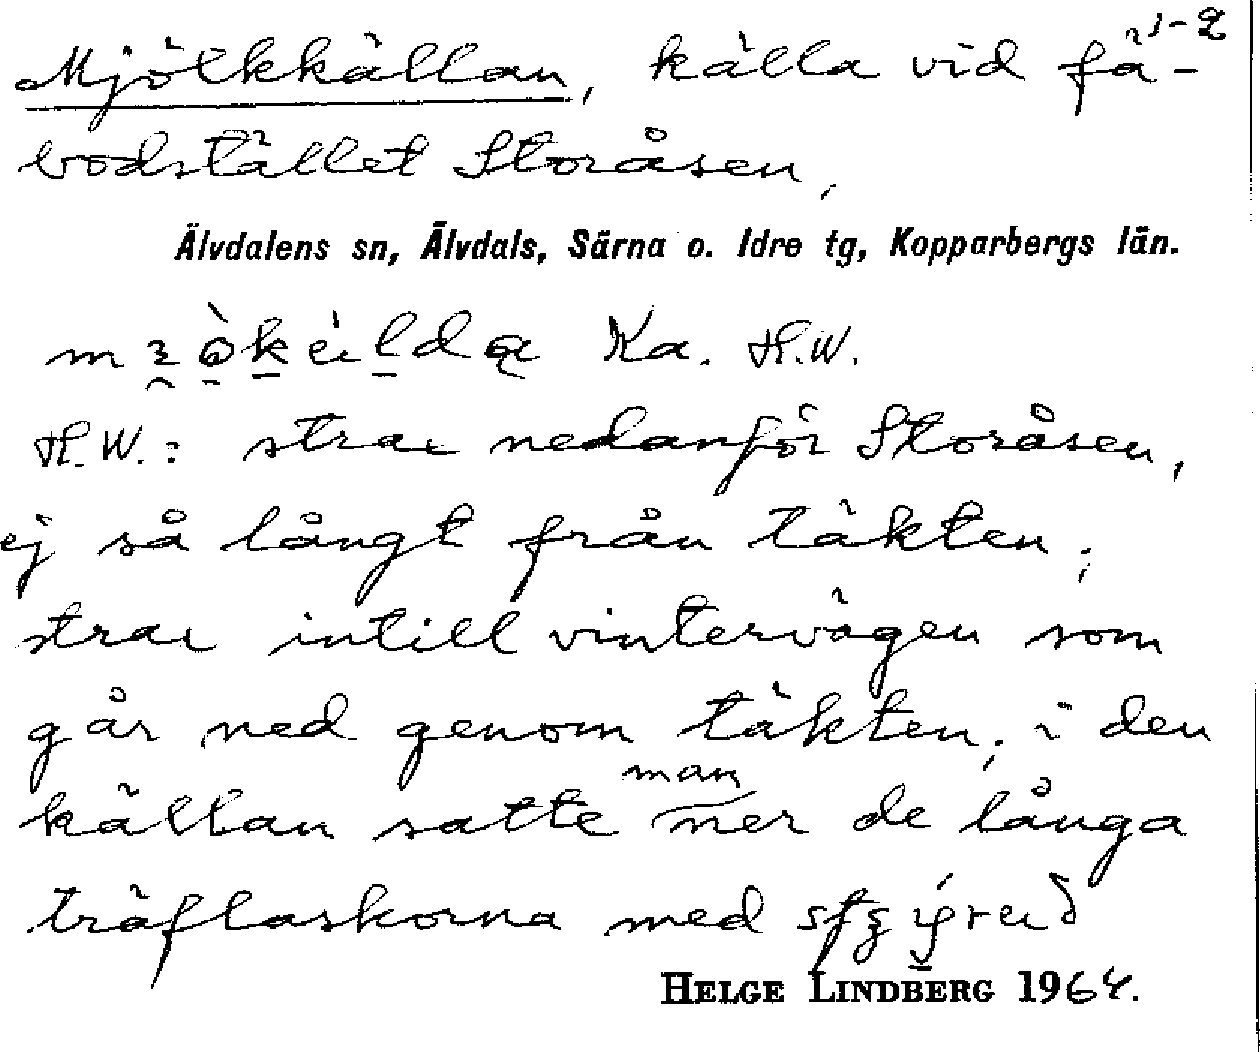 Mjölkkällan, källa vid fä- 1-2
bodstället Storåsen,
Älvdalens sn, Älvdals, Särna o. Idre tg, Kopparbergs län.
Ka. H.W.
H.W.: strax nedanför Storåsen,
ej så långt från täkten;
strax intill vintervägen som
går ned genom täkten; i den
man
källan satte ner de långa
träflaskorna med
HELGE LINDBERG 1964.